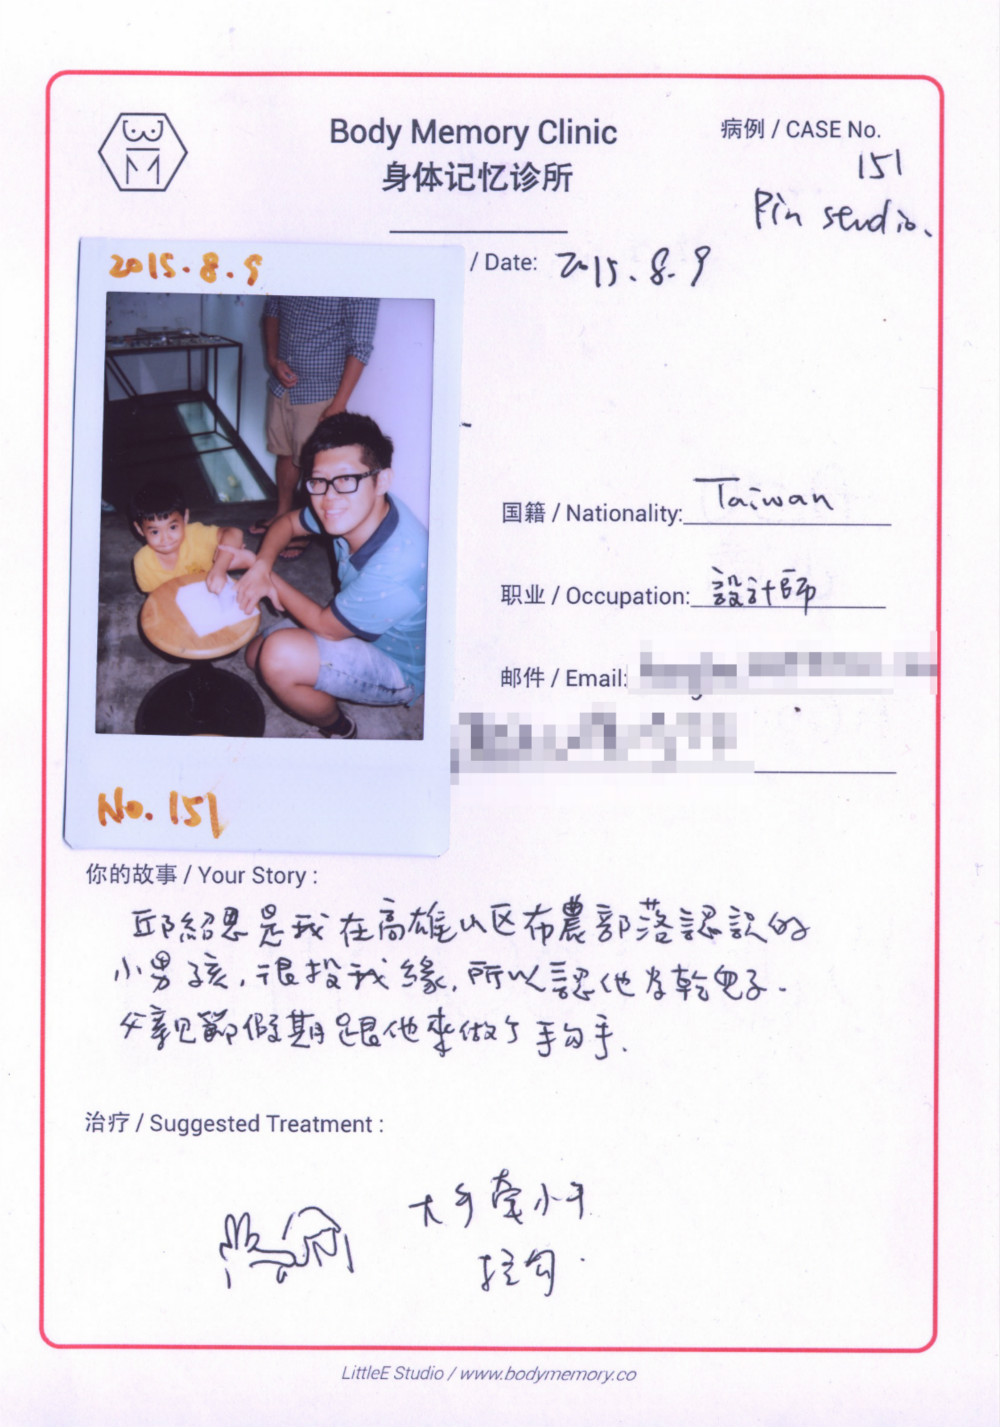 Body Memory Clinic
身体记忆诊所
病例 / CASE No.
151
Pin
/ Date: 2015.8.9
2015.8.9
No. 151
国籍 / Nationality: Taiwan
职业 / Occupation: 設計師
邮件 / Email:
你的故事 / Your Story :
邱紹恩是我在高雄山区布農部落認識的
小男孩,很投我緣,所以認他为乾兒子.
父親節假期跟他來做了手勾手.
治疗 / Suggested Treatment :
大手牽小手
拉勾.
LittleE Studio / www.bodymemory.co